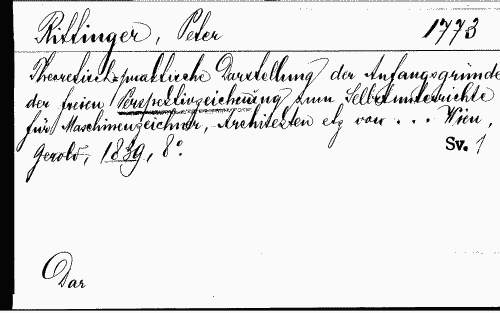 Rittinger, Peter 1773
Theoretisch-praktische Darstellung der Anfangsgründe
der freien Perspektivzeichnung zum Selbstunterrichte
für Maschinenzeichner, Architekten etz von ... Wien,
Gerold, 1839, 8°.
Sv. 1
Dar